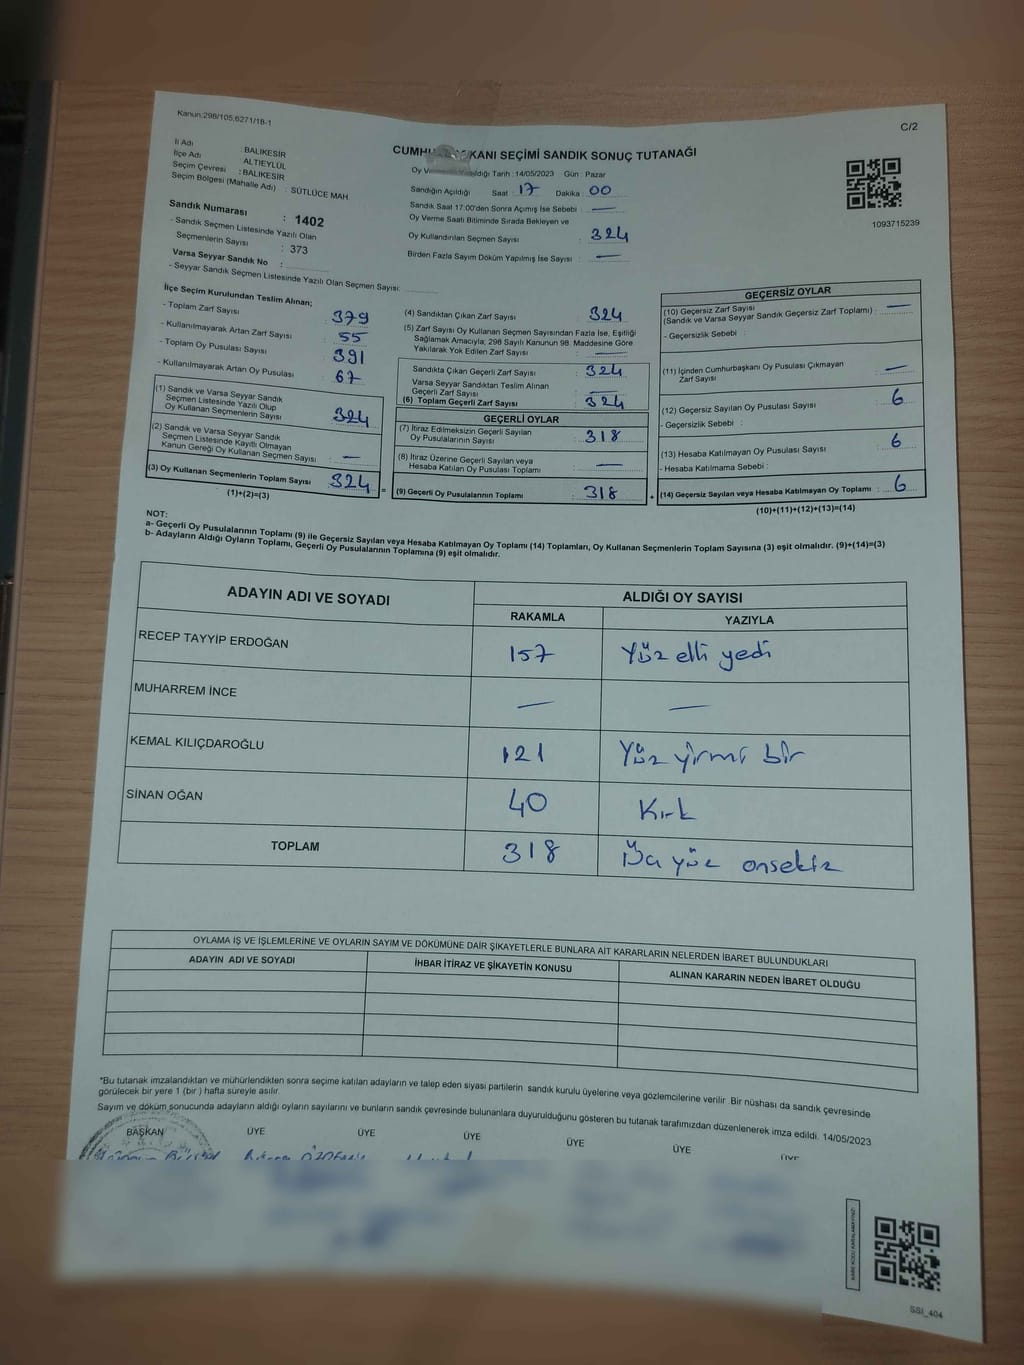 Kanun:298/105,6271/18-1
C/2
İl Adı BALIKESİR
İlçe Adı ALTIEYLÜL
Seçim Çevresi : BALIKESİR
Seçim Bölgesi (Mahalle Adı) : SÜTLÜCE MAH.
Sandık Numarası : 1402
- Sandık Seçmen Listesinde Yazılı Olan
Seçmenlerin Sayısı : 373
Varsa Seyyar Sandık No :
- Seyyar Sandık Seçmen Listesinde Yazılı Olan Seçmen Sayısı:
SEÇİMİ SANDIK SONUÇ TUTANAĞI
Oy Tarih : 14/05/2023 Gün : Pazar
Sandığın Açıldığı Saat : 17 Dakika : 00
Sandık Saat 17:00'den Sonra Açımış İse Sebebi : —
Oy Verme Saati Bitiminde Sırada Bekleyen ve
Oy Kullandırılan Seçmen Sayısı : 324
Birden Fazla Sayım Döküm Yapılmış İse Sayısı : —
1093715239
İlçe Seçim Kurulundan Teslim Alınan;
- Toplam Zarf Sayısı : 379
- Kullanılmayarak Artan Zarf Sayısı : 55
- Toplam Oy Pusulası Sayısı : 391
- Kullanılmayarak Artan Oy Pusulası : 67
(1) Sandık ve Varsa Seyyar Sandık
Seçmen Listesinde Yazılı Olup
Oy Kullanan Seçmenlerin Sayısı : 324
(2) Sandık ve Varsa Seyyar Sandık
Seçmen Listesinde Kayıtlı Olmayan
Kanun Gereği Oy Kullanan Seçmen Sayısı : —
(3) Oy Kullanan Seçmenlerin Toplam Sayısı : 324 =
(1)+(2)=(3)
(4) Sandıktan Çıkan Zarf Sayısı : 324
(5) Zarf Sayısı Oy Kullanan Seçmen Sayısından Fazla İse, Eşitliği
Sağlamak Amacıyla; 298 Sayılı Kanunun 98. Maddesine Göre
Yakılarak Yok Edilen Zarf Sayısı : —
Sandıkta Çıkan Geçerli Zarf Sayısı : 324
Varsa Seyyar Sandıktan Teslim Alınan
Geçerli Zarf Sayısı
(6) Toplam Geçerli Zarf Sayısı : 324
GEÇERLİ OYLAR
(7) İtiraz Edilmeksizin Geçerli Sayılan
Oy Pusulalarının Sayısı : 318
(8) İtiraz Üzerine Geçerli Sayılan veya
Hesaba Katılan Oy Pusulası Toplamı : —
(9) Geçerli Oy Pusulalarının Toplamı : 318 +
GEÇERSİZ OYLAR
(10) Geçersiz Zarf Sayısı
(Sandık ve Varsa Seyyar Sandık Geçersiz Zarf Toplamı) : —
- Geçersizlik Sebebi :
(11) İçinden Cumhurbaşkanı Oy Pusulası Çıkmayan
Zarf Sayısı : —
(12) Geçersiz Sayılan Oy Pusulası Sayısı : 6
- Geçersizlik Sebebi :
(13) Hesaba Katılmayan Oy Pusulası Sayısı : 6
- Hesaba Katılmama Sebebi :
(14) Geçersiz Sayılan veya Hesaba Katılmayan Oy Toplamı : 6
(10)+(11)+(12)+(13)=(14)
NOT:
a- Geçerli Oy Pusulalarının Toplamı (9) ile Geçersiz Sayılan veya Hesaba Katılmayan Oy Toplamı (14) Toplamları, Oy Kullanan Seçmenlerin Toplam Sayısına (3) eşit olmalıdır. (9)+(14)=(3)
b- Adayların Aldığı Oyların Toplamı, Geçerli Oy Pusulalarının Toplamına (9) eşit olmalıdır.
ADAYIN ADI VE SOYADI ALDIĞI OY SAYISI
RAKAMLA YAZIYLA
RECEP TAYYİP ERDOĞAN 157 Yüz elli yedi
MUHARREM İNCE — —
KEMAL KILIÇDAROĞLU 121 Yüz yirmi bir
SİNAN OĞAN 40 Kırk
TOPLAM 318 Üç yüz onsekiz
OYLAMA İŞ VE İŞLEMLERİNE VE OYLARIN SAYIM VE DÖKÜMÜNE DAİR ŞİKAYETLERLE BUNLARA AİT KARARLARIN NELERDEN İBARET BULUNDUKLARI
ADAYIN ADI VE SOYADI İHBAR İTİRAZ VE ŞİKAYETİN KONUSU ALINAN KARARIN NEDEN İBARET OLDUĞU
*Bu tutanak imzalandıktan ve mühürlendikten sonra seçime katılan adayların ve talep eden siyasi partilerin sandık kurulu üyelerine veya gözlemcilerine verilir. Bir nüshası da sandık çevresinde
görülecek bir yere 1 (bir ) hafta süreyle asılır.
Sayım ve döküm sonucunda adayların aldığı oyların sayılarını ve bunların sandık çevresinde bulunanlara duyurulduğunu gösteren bu tutanak tarafımızdan düzenlenerek imza edildi. 14/05/2023
BAŞKAN ÜYE ÜYE ÜYE ÜYE ÜYE ÜYE
SSI_404